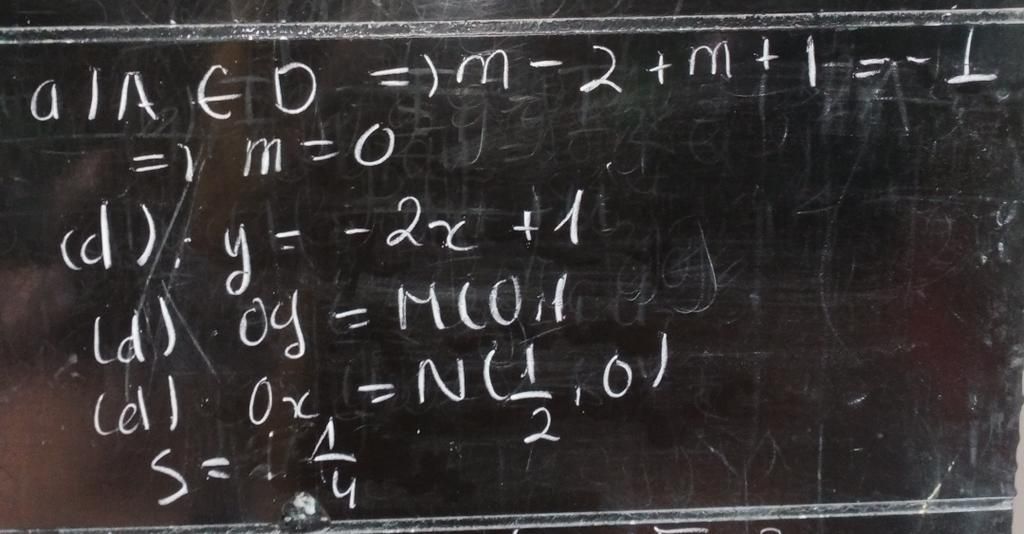 a) A ∈ D => m - 2 + m + 1 = - 1
=> m = 0
(d): y = -2x + 1
(d) Oy = M(0,1
(d) Ox = N(1/2, 0)
S = 1/4